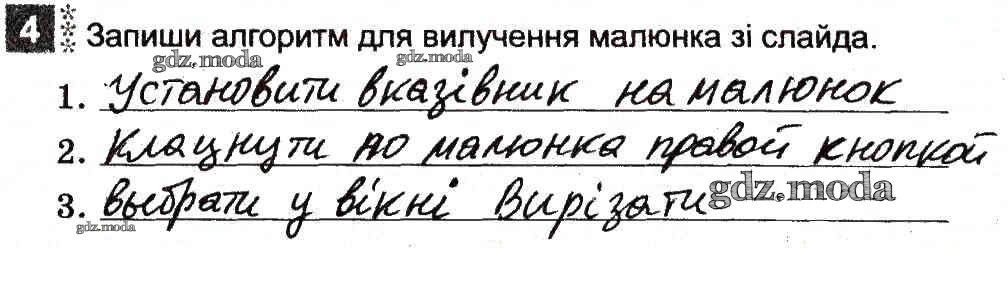 4 Запиши алгоритм для вилучення малюнка зі слайда.
gdz.moda gdz.moda
1. Установити вказівник на малюнок
2. Клацнути по малюнка правой кнопкой
3. выбрати у вікні Вирізати gdz.moda
gdz.moda